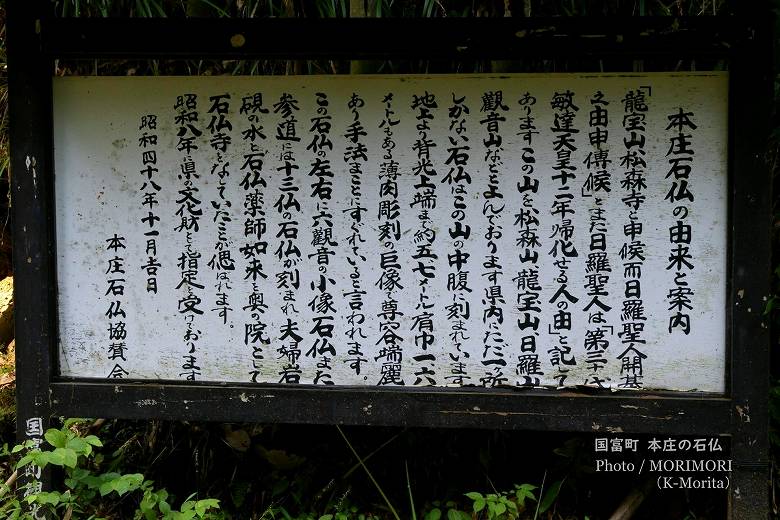 本庄石仏の由来と案内
「龍宝山松森寺と申候而日羅聖人開基
之由申傳候」とまた日羅聖人は、「第三十代
敏達天皇十二年帰化せる人の由」と記して
あります この山を松森山 龍宝山日羅山
觀音山などとよんでおります 県内にただ一ヶ所
しかない石仏はこの山の中腹に刻まれています
地上より背光上端まで約五七メートル肩巾一六
メートルもある薄肉彫刻の巨像で尊容端麗
あり手法まことにすぐれていると言われます。
この石仏の左右に六觀音の小像石仏また
参道には十三仏の石仏が刻まれ 夫婦岩
硯の水と石仏薬師如来を奥の院として
石仏寺となっていたことが偲ばれます。
昭和八年に県の文化財として指定を受けております
昭和四十八年十一月吉日
本庄石仏協賛会
国富町観光
国富町 本庄の石仏
Photo / MORIMORI
（K-Morita）